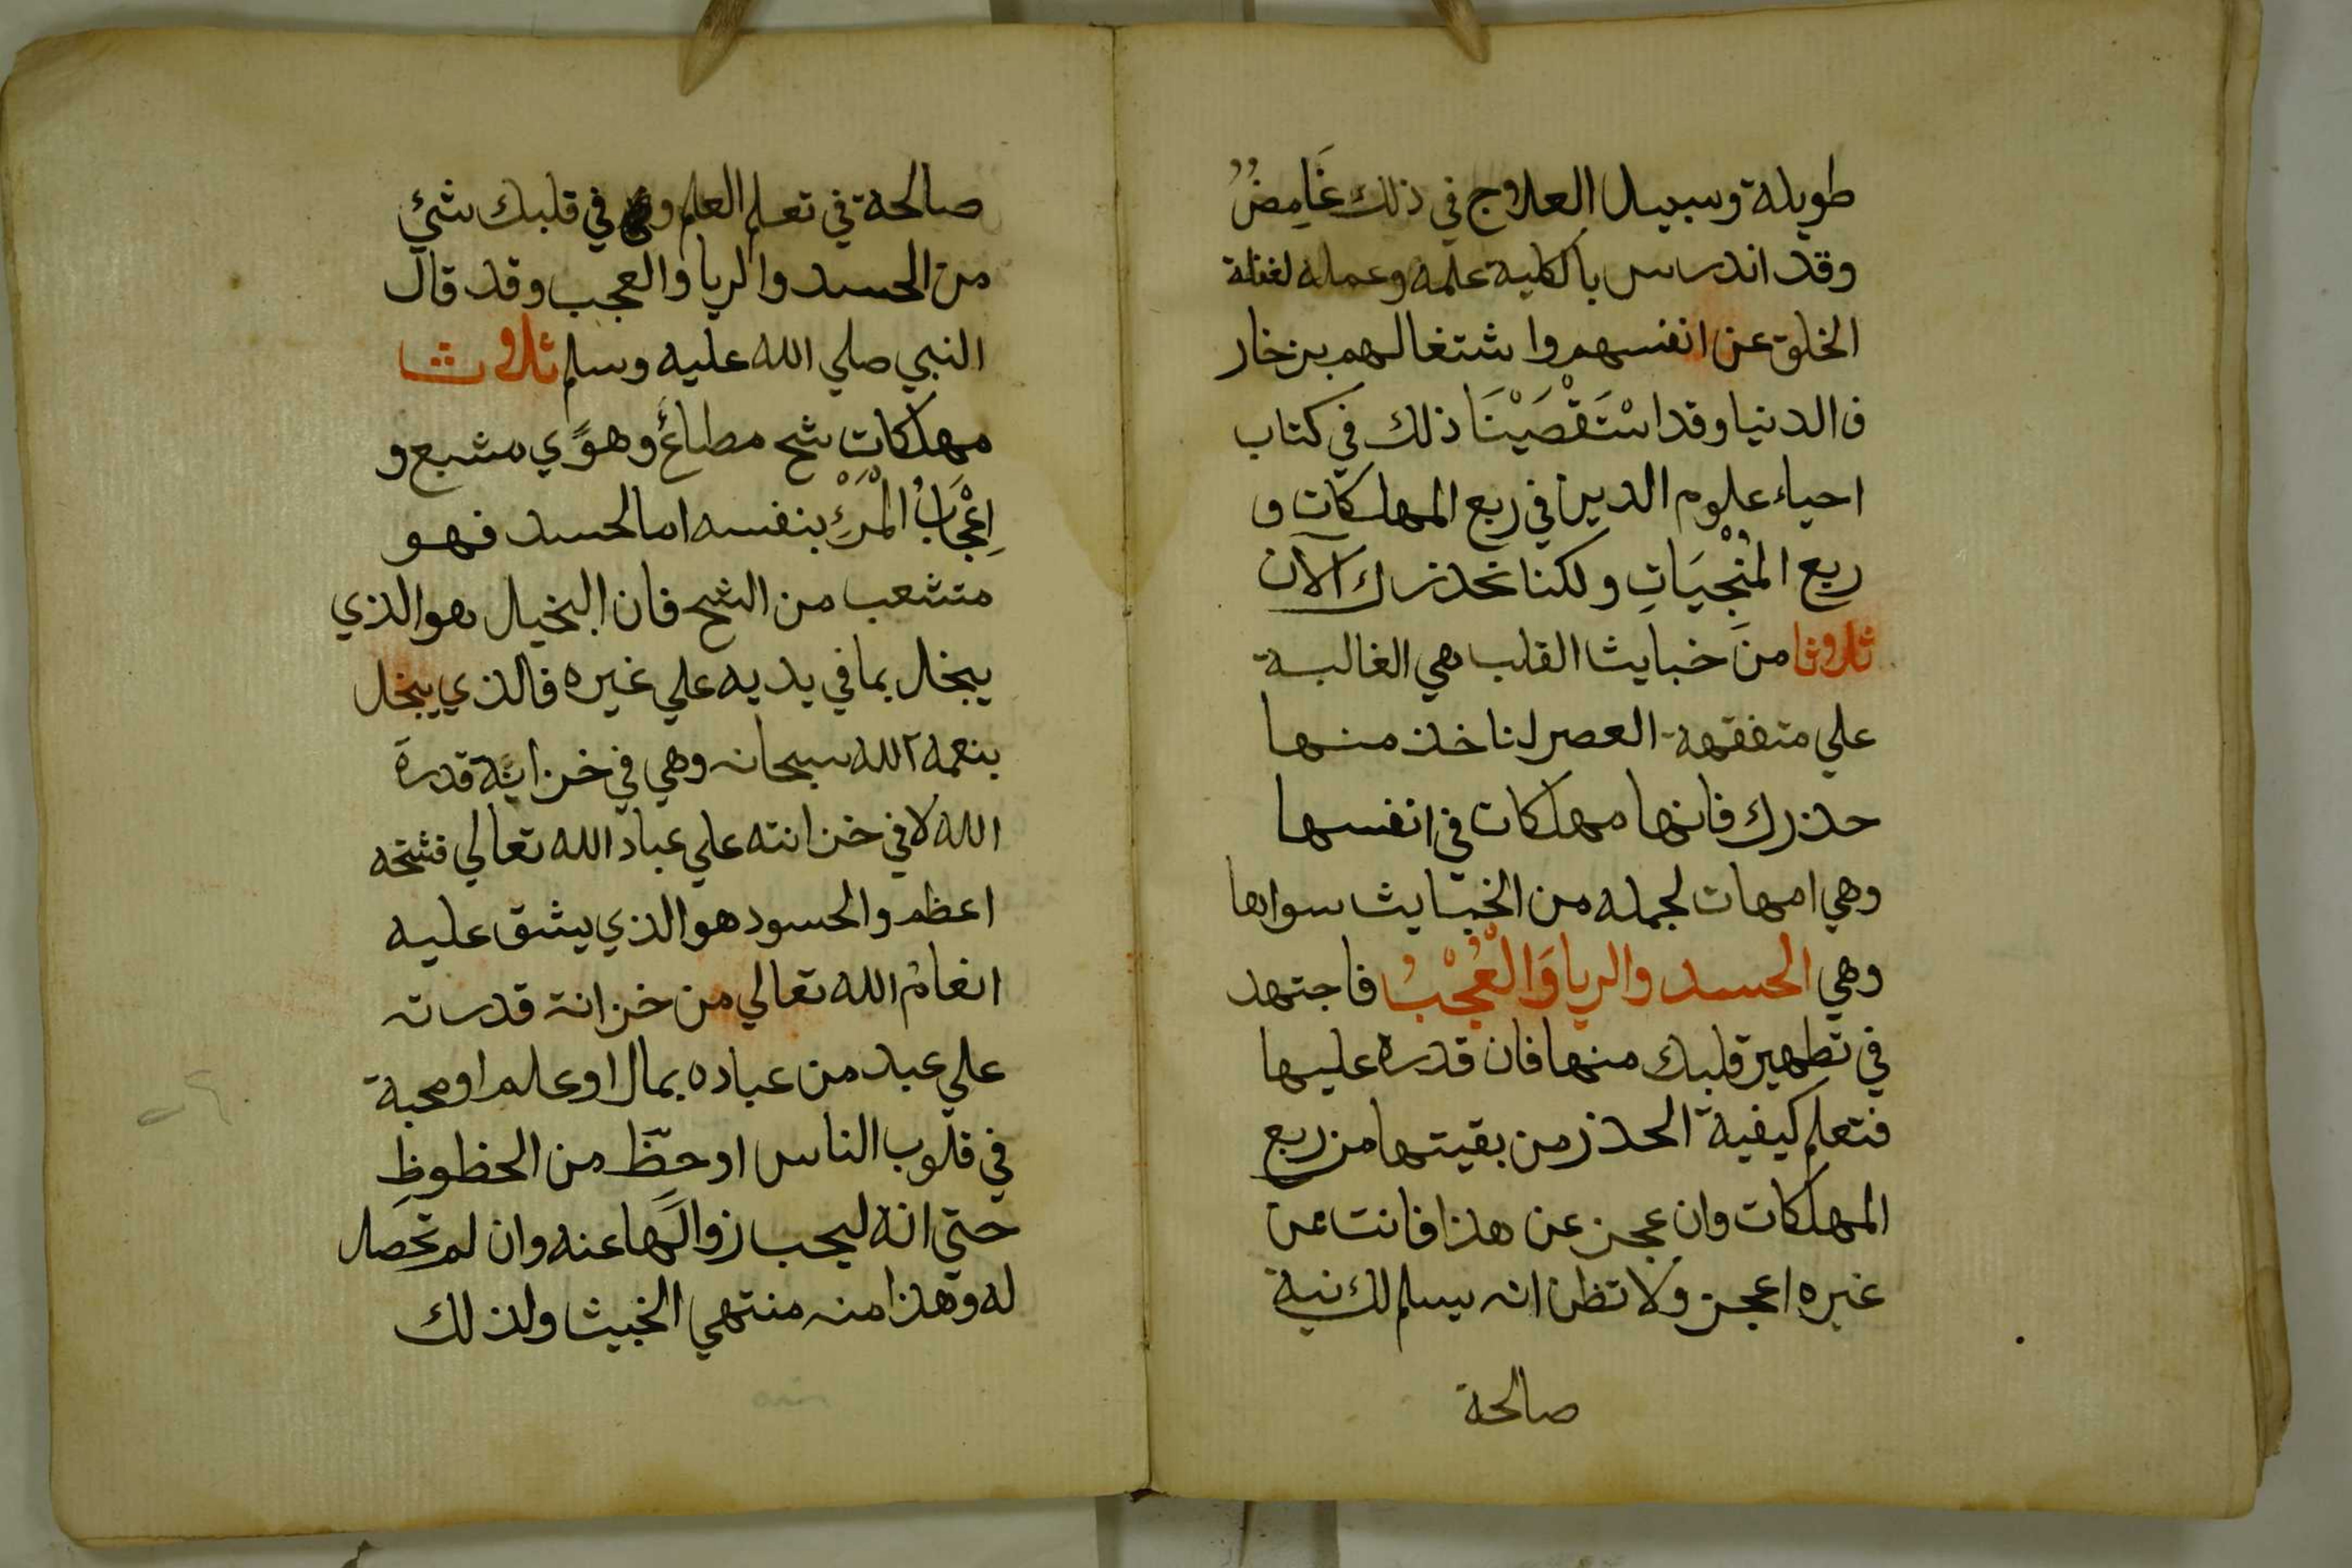 طويلة وسبيل العلاج في ذلك غَامِضُ
وقد اندرس بالكلية علمه وعمله لغفلة
الخلق عن انفسهم واشتغالهم بزخار
ف الدنيا وقد اسْتَقْصَيْنَا ذلك في كتاب
احياء علوم الدين في ربع المهلكات و
ربع المُنْجِيَاتِ ولكنا نحذرك الآن
ثلاوثا من خبايث القلب هي الغالبة
علي متفقهة العصر لناخذ منها
حذرك فانها مهلكات في انفسها
وهي امهات لجمله من الخبايث سواها
وهي الحسد والريا وَالْعُجْبُ فاجتهد
في تطهير قلبك منها فان قدره عليها
فتعلم كيفية الحذر من بقيتها من ربع
المهلكات وان عجز عن هذا فانت عن
غيره اعجز ولا تظن انه يسلم لك نية
صالحة
صالحة في تعلم العلم وفي قلبك شئ
من الحسد والريا والعجب وقد قال
النبي صلي الله عليه وسلم ثلاوث
مهلكات شح مطاع وهوًي متبع و
اِعْجَابُ الْمَرْءِ بنفسه اما الحسد فهو
متشعب من الشح فان البخيل هو الذي
يبخل بما في يديه علي غيره فالذي يبخل
بنعمه الله سبحانه وهي في خزاينة قدرة
الله لا في خزانته علي عباد الله تعالي فشحه
اعظم والحسود هو الذي يشق عليه
انعامُ الله تعالي من خزانة قدرته
علي عبد من عباده بمال او علم او محبة
في قلوب الناس او حظّ من الحظوظِ
حتي انه ليحب زوالَها عنه وان لم تحصل
له وهذا منه منتهي الخبيث ولذلك